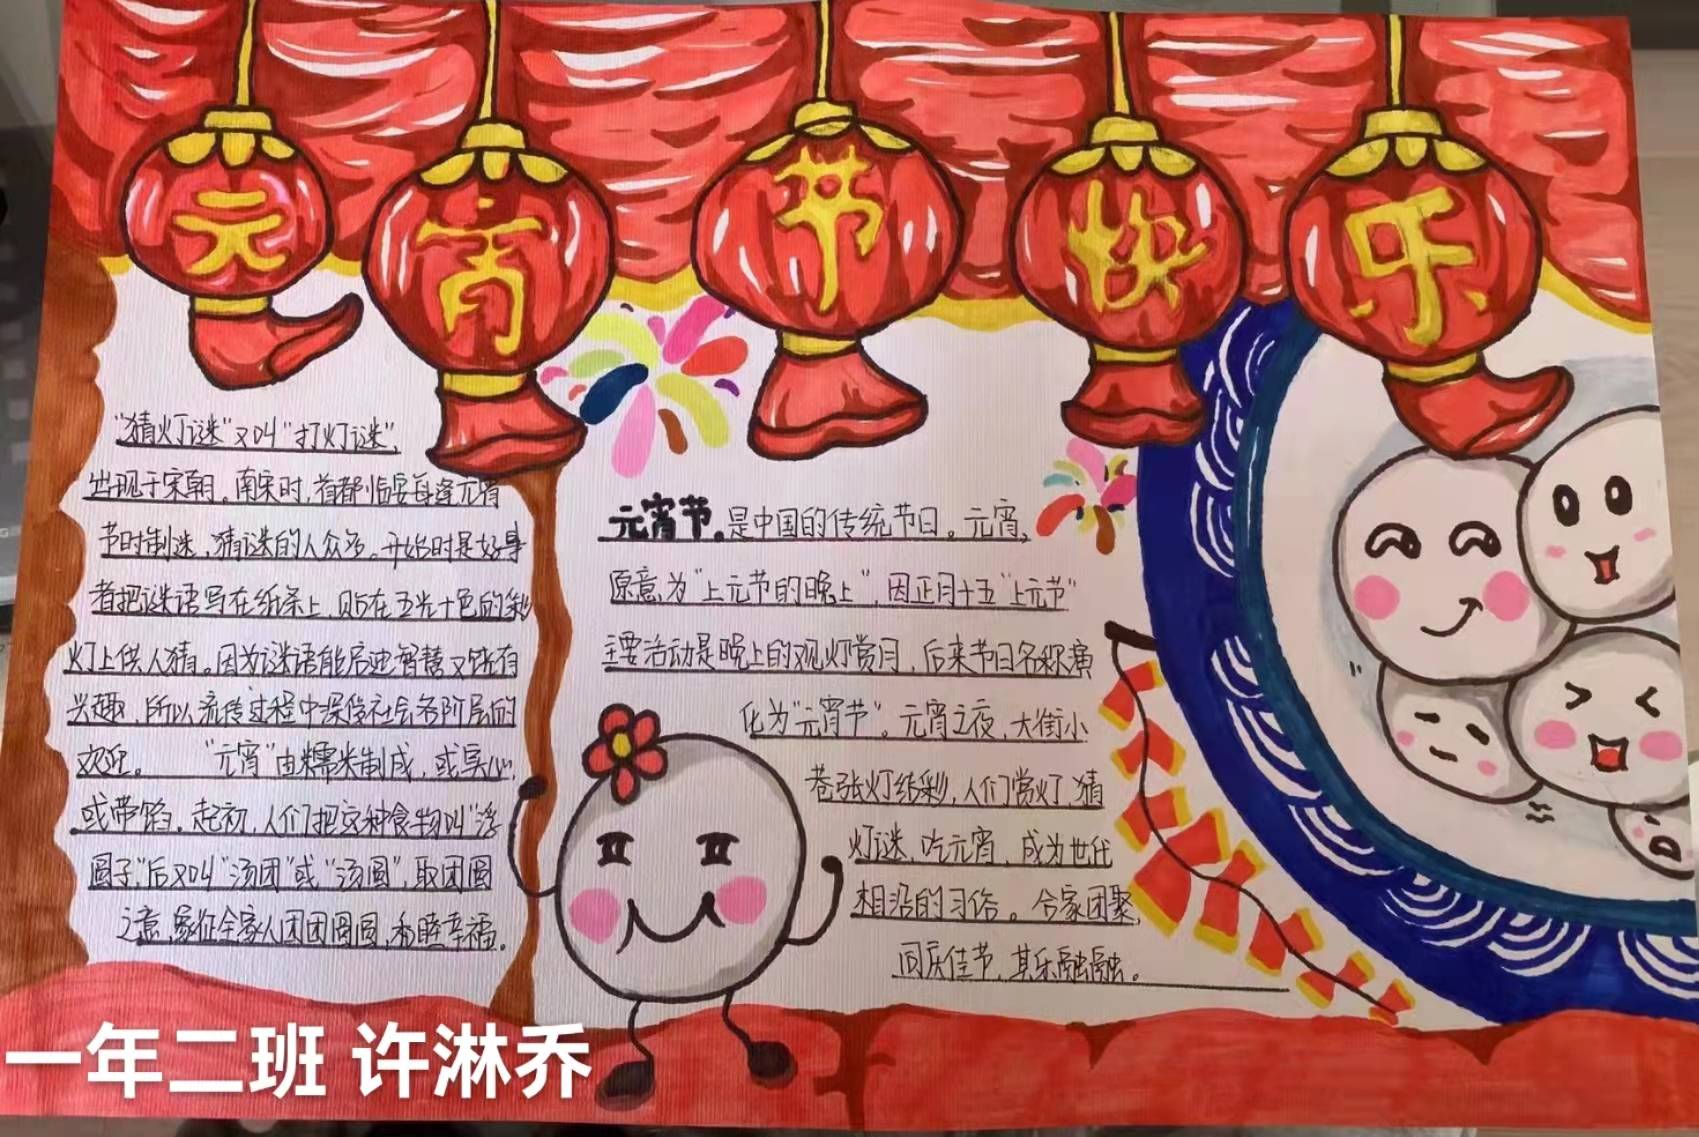 元宵节快乐
"猜灯谜"又叫"打灯谜",
出现于宋朝。南宋时,首都临安每逢元宵
节时制迷,猜谜的人众多。开始时是好事
者把谜语写在纸条上,贴在五光十色的彩
灯上供人猜。因为谜语能启迪智慧又饶有
兴趣,所以流传过程中深受社会各阶层的
欢迎。 "元宵"由糯米制成,或实心,
或带馅。起初,人们把这种食物叫"浮
圆子"后又叫"汤团"或"汤圆",取团圆
之意,象征全家人团团圆圆,和睦幸福。
元宵节。是中国的传统节日。元宵,
原意为"上元节的晚上",因正月十五"上元节"
主要活动是晚上的观灯赏月,后来节日名称演
化为"元宵节"。元宵之夜,大街小
巷张灯结彩,人们赏灯,猜
灯谜,吃元宵,成为世代
相沿的习俗。合家团聚,
同庆佳节,其乐融融。
一年二班 许淋乔